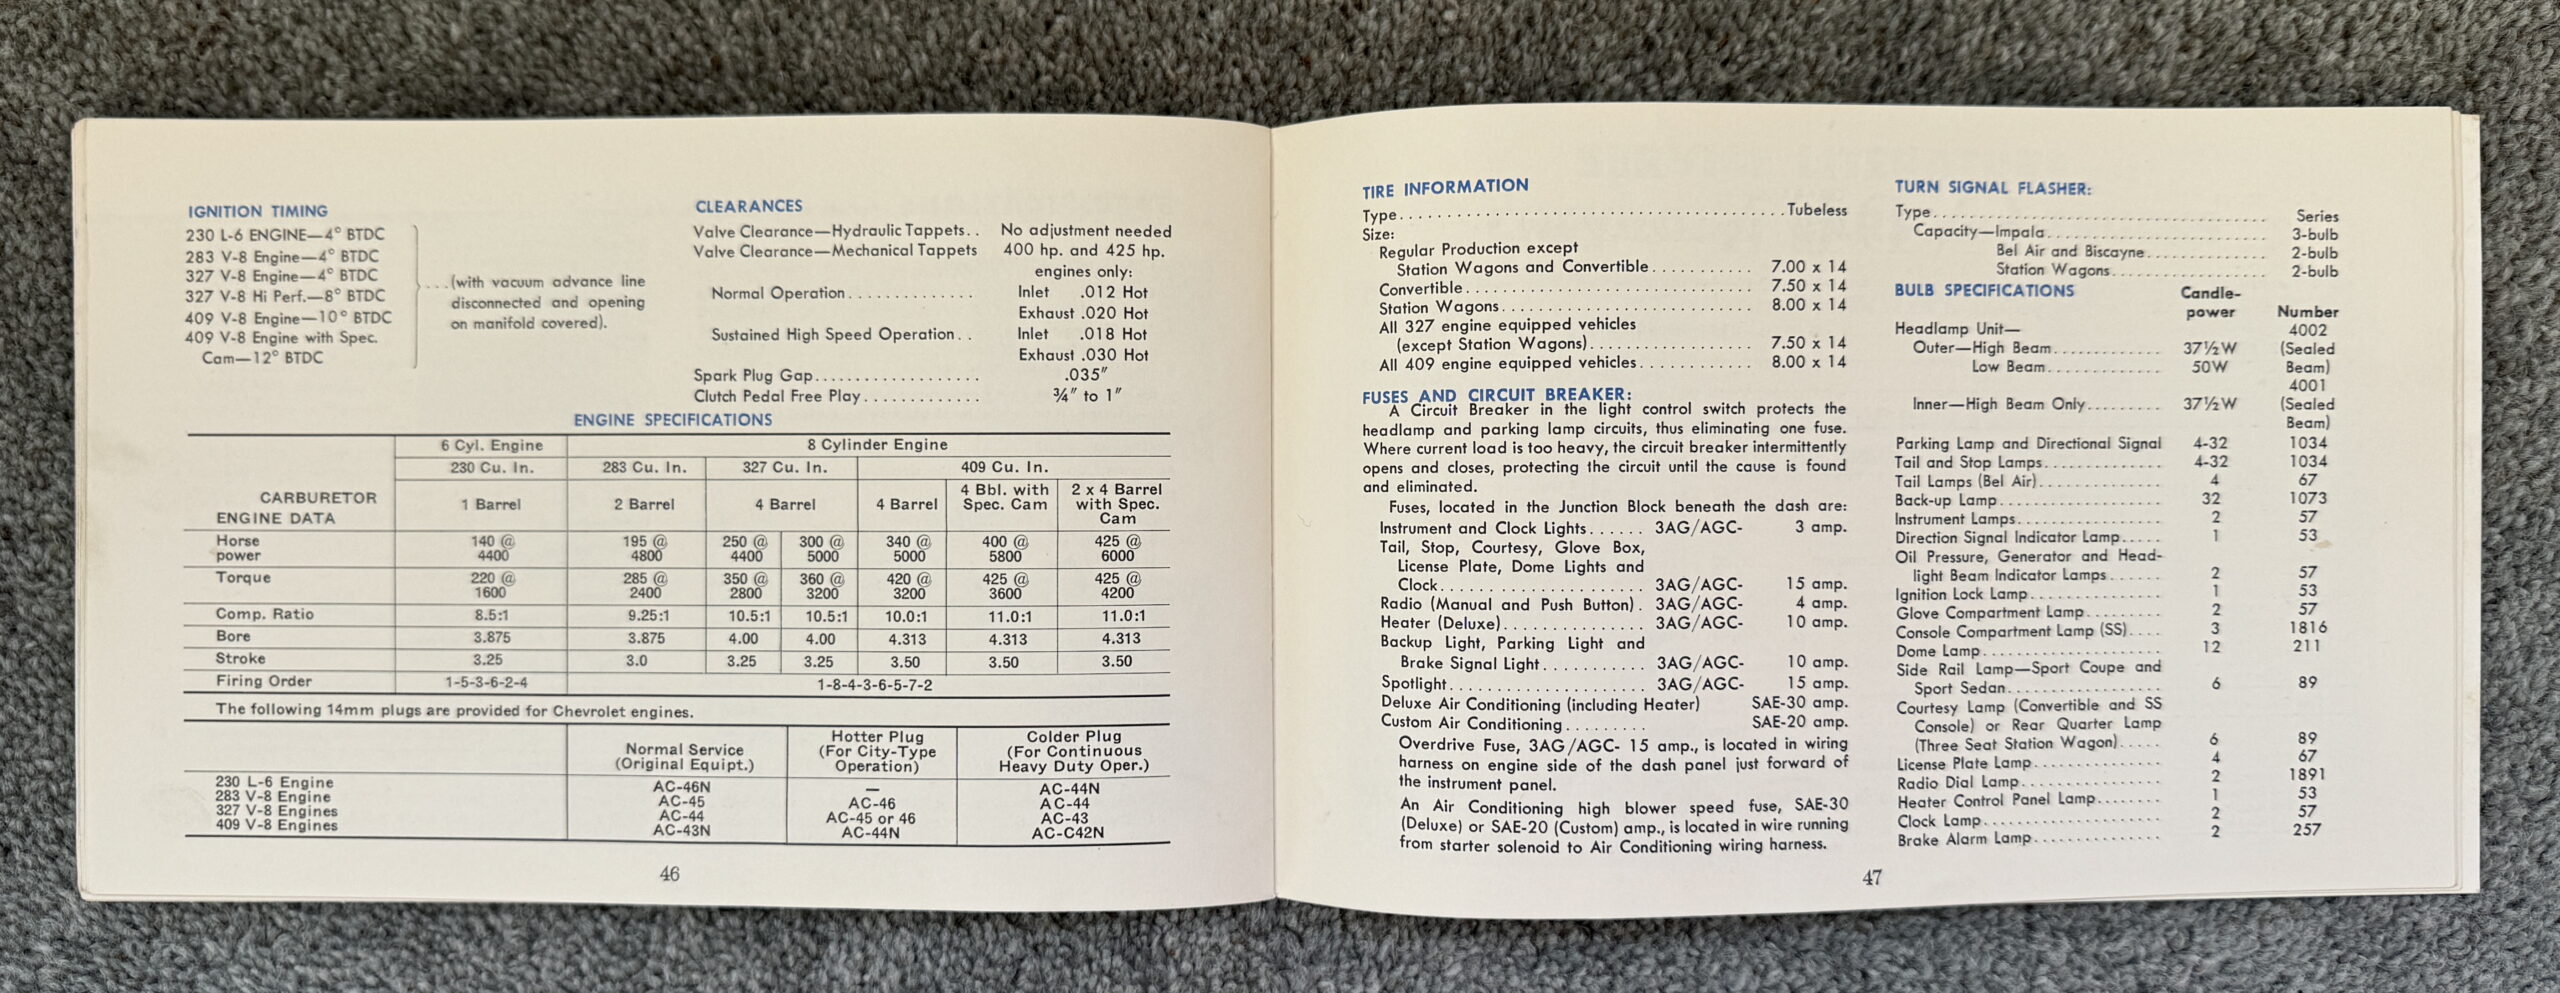 IGNITION TIMING
230 L-6 ENGINE—4° BTDC
283 V-8 Engine—4° BTDC
327 V-8 Engine—4° BTDC
327 V-8 Hi Perf.—8° BTDC
409 V-8 Engine—10° BTDC
409 V-8 Engine with Spec.
Cam—12° BTDC
...(with vacuum advance line
disconnected and opening
on manifold covered).
CLEARANCES
Valve Clearance—Hydraulic Tappets.. No adjustment needed
Valve Clearance—Mechanical Tappets 400 hp. and 425 hp.
engines only:
Normal Operation.............. Inlet .012 Hot
Exhaust .020 Hot
Sustained High Speed Operation.. Inlet .018 Hot
Exhaust .030 Hot
Spark Plug Gap................... .035"
Clutch Pedal Free Play............. ¾" to 1"
ENGINE SPECIFICATIONS
6 Cyl. Engine 8 Cylinder Engine
230 Cu. In. 283 Cu. In. 327 Cu. In. 409 Cu. In.
CARBURETOR
ENGINE DATA
1 Barrel 2 Barrel 4 Barrel 4 Barrel
4 Bbl. with
Spec. Cam
2 x 4 Barrel
with Spec.
Cam
Horse 140 @ 195 @ 250 @ 300 @ 340 @ 400 @ 425 @
power 4400 4800 4400 5000 5000 5800 6000
Torque 220 @ 285 @ 350 @ 360 @ 420 @ 425 @ 425 @
1600 2400 2800 3200 3200 3600 4200
Comp. Ratio 8.5:1 9.25:1 10.5:1 10.5:1 10.0:1 11.0:1 11.0:1
Bore 3.875 3.875 4.00 4.00 4.313 4.313 4.313
Stroke 3.25 3.0 3.25 3.25 3.50 3.50 3.50
Firing Order 1-5-3-6-2-4 1-8-4-3-6-5-7-2
The following 14mm plugs are provided for Chevrolet engines.
Normal Service
(Original Equipt.)
Hotter Plug
(For City-Type
Operation)
Colder Plug
(For Continuous
Heavy Duty Oper.)
230 L-6 Engine AC-46N — AC-44N
283 V-8 Engine AC-45 AC-46 AC-44
327 V-8 Engines AC-44 AC-45 or 46 AC-43
409 V-8 Engines AC-43N AC-44N AC-C42N
46
TIRE INFORMATION
Type........................................Tubeless
Size:
Regular Production except
Station Wagons and Convertible........... 7.00 x 14
Convertible.............................. 7.50 x 14
Station Wagons.......................... 8.00 x 14
All 327 engine equipped vehicles
(except Station Wagons)................. 7.50 x 14
All 409 engine equipped vehicles............ 8.00 x 14
FUSES AND CIRCUIT BREAKER:
A Circuit Breaker in the light control switch protects the
headlamp and parking lamp circuits, thus eliminating one fuse.
Where current load is too heavy, the circuit breaker intermittently
opens and closes, protecting the circuit until the cause is found
and eliminated.
Fuses, located in the Junction Block beneath the dash are:
Instrument and Clock Lights...... 3AG/AGC- 3 amp.
Tail, Stop, Courtesy, Glove Box,
License Plate, Dome Lights and
Clock...................... 3AG/AGC- 15 amp.
Radio (Manual and Push Button). 3AG/AGC- 4 amp.
Heater (Deluxe)............... 3AG/AGC- 10 amp.
Backup Light, Parking Light and
Brake Signal Light........... 3AG/AGC- 10 amp.
Spotlight..................... 3AG/AGC- 15 amp.
Deluxe Air Conditioning (including Heater) SAE-30 amp.
Custom Air Conditioning......... SAE-20 amp.
Overdrive Fuse, 3AG/AGC- 15 amp., is located in wiring
harness on engine side of the dash panel just forward of
the instrument panel.
An Air Conditioning high blower speed fuse, SAE-30
(Deluxe) or SAE-20 (Custom) amp., is located in wire running
from starter solenoid to Air Conditioning wiring harness.
TURN SIGNAL FLASHER:
Type................................... Series
Capacity—Impala........................ 3-bulb
Bel Air and Biscayne............. 2-bulb
Station Wagons................ 2-bulb
BULB SPECIFICATIONS Candle-
power Number
Headlamp Unit— 4002
Outer—High Beam............ 37½W (Sealed
Low Beam............. 50W Beam)
4001
Inner—High Beam Only......... 37½W (Sealed
Beam)
Parking Lamp and Directional Signal 4-32 1034
Tail and Stop Lamps............. 4-32 1034
Tail Lamps (Bel Air).............. 4 67
Back-up Lamp................... 32 1073
Instrument Lamps................ 2 57
Direction Signal Indicator Lamp..... 1 53
Oil Pressure, Generator and Head-
light Beam Indicator Lamps...... 2 57
Ignition Lock Lamp............... 1 53
Glove Compartment Lamp......... 2 57
Console Compartment Lamp (SS).... 3 1816
Dome Lamp..................... 12 211
Side Rail Lamp—Sport Coupe and
Sport Sedan.................. 6 89
Courtesy Lamp (Convertible and SS
Console) or Rear Quarter Lamp
(Three Seat Station Wagon)..... 6 89
License Plate Lamp............... 4 67
Radio Dial Lamp................. 2 1891
Heater Control Panel Lamp........ 1 53
Clock Lamp..................... 2 57
Brake Alarm Lamp............... 2 257
47